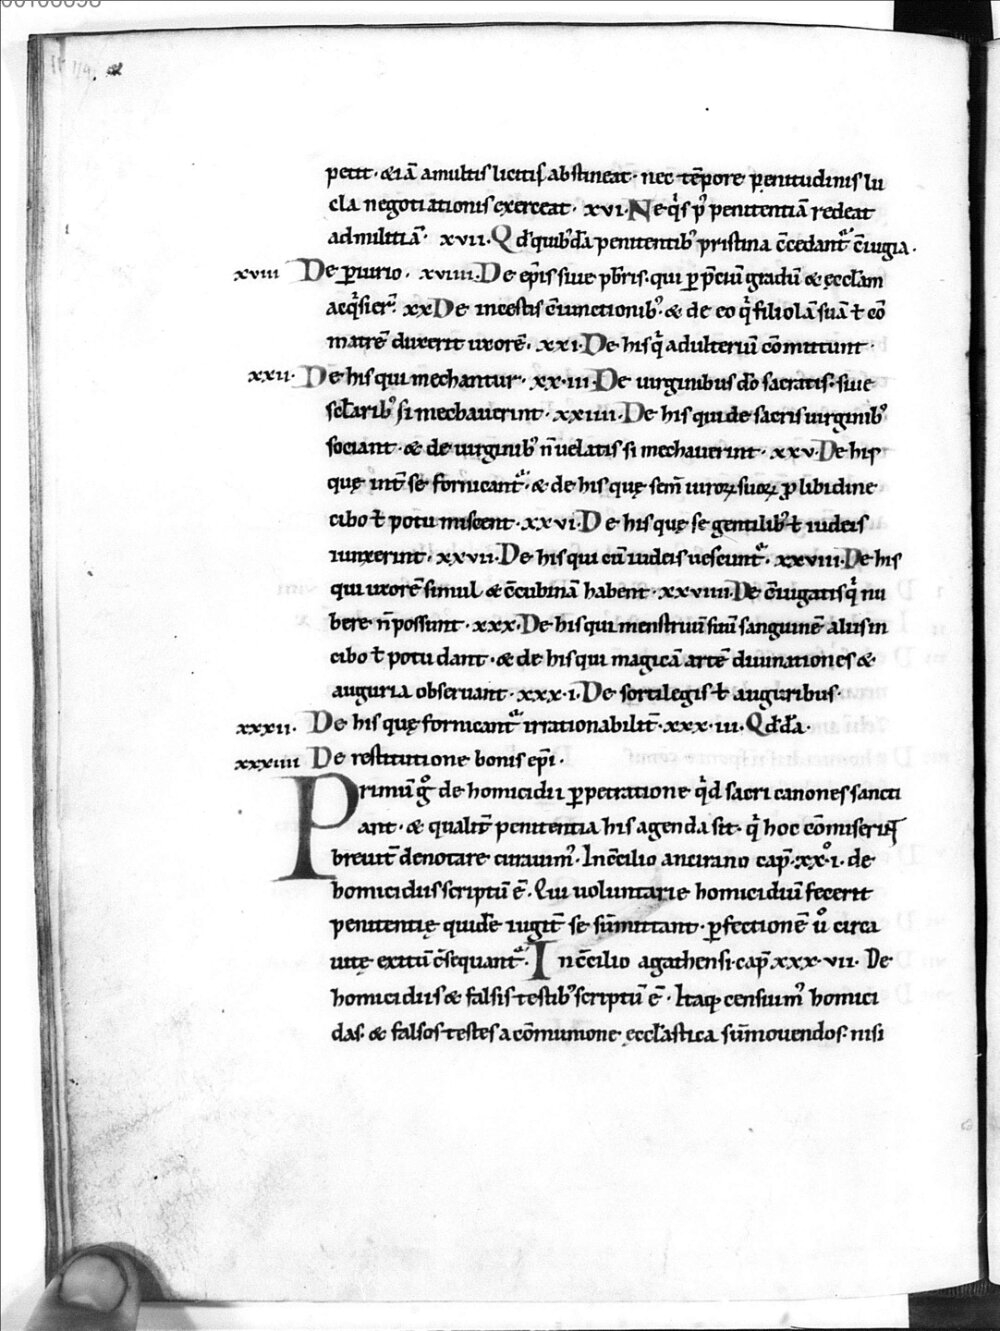 petit · &iā a multis licitis abstineat · nec tēpore penitudinis lu
cla negotiationis exerceat · xvi · Ne q̇s p̾ penitentiā redeat
ad militiā · xvii · Qđ quibꝰdā penitentibꝰ pristina c̄cedantᵃ c̄iugia ·
xviii De ꝑiurio · xviiii · De ep̄is siue pb̄ris · qui ꝑ p̄ciū gradū & ęccl̄am
acq̇sier̄ · xx De incestis c̄iunctionibꝰ · & de eo q̇ filiolā suā ł cō
matrē duxerit uxorē · xxi · De his q̇ adulteriū cōmittunt ·
xxii · De his qui mechantur · xx · iii · De uirginibus dō sacratis · siue
sc̄laribꝰ si mechauerint · xxiiii · De his qui de sacris uirginibꝰ
sociant · & de uirginibꝰ n̄ uelatis si mechauerint · xxv · De his
quę int̄ se fornicantᵃ · & de his quę sem̄ uiroꝝ suoꝝ ꝓ libidine
cibo ł potu miscent · xxvi · De his quę se gentilibꝰ ł iudeis
iunxerint · xxvii · De his qui cū iudeis uescuntᵃ · xxviii · De his
qui uxorē simul & c̄cubinā habent · xxviiii · De c̄iugatis q̇ nu
bere n̄ possunt · xxx · De his qui menstruū suū sanguinē aliis in
cibo ł potu dant · & de his qui magicā artē diuinationes &
auguria obseruant · xxx · i · De sortilegis ł auguribus ·
xxxii · De his quę fornicantᵃ irrationabilit̄ · xxx · iii · Qđdā ·
xxxiiii De restitutione bonis ep̄i ·
Primū g̊ de homicidii ꝑpetratione q̇d sacri canones sancti
ant · & qualit̄ penitentia his agenda sit · q̇ hoc cōmiserint
breuit̄ denotare curauimꝰ · In c̄cilio ancirano cap̄ · xx̊ · i · de
homicidiis scriptū ē · Qui uoluntarie homicidiū fecerit
penitentię quidē iugit̄ se sūmittant · ꝑfectionē ů circa
uitę exitū c̄sequantᵃ · In c̄cilio agathensi · cap̄ xxx · vii · De
homicidiis & falsis testibꝰ scriptū ē · Itaqꝫ censuimꝰ homici
das · & falsos testes a cōmunione ęccl̄astica sūmouendos · nisi